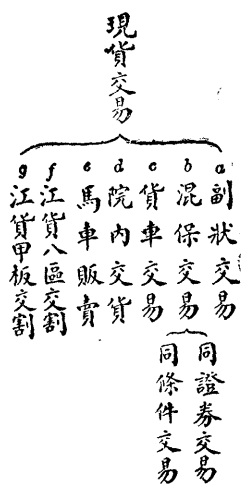 現貨交易
a 副狀交易
b 混保交易
同證券交易
同條件交易
c 貨車交易
d 院內交貨
e 馬車販賣
f 江貨八區交割
g 江貨甲板交割